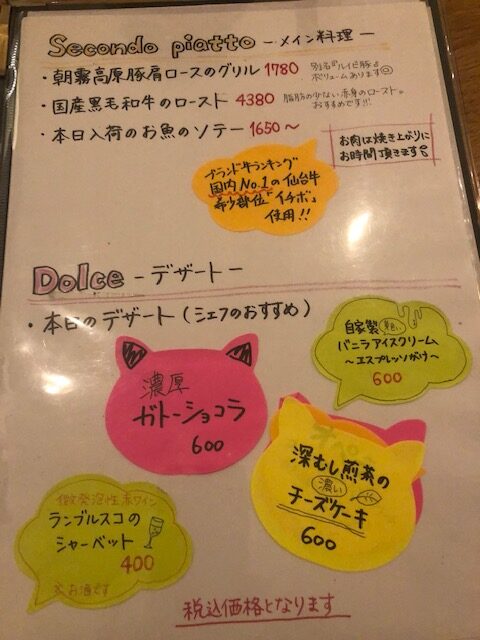 Secondo piatto －メイン料理－
・朝霧高原豚肩ロースのグリル 1780
別名『ルイビ豚』
ボリュームあります
・国産黒毛和牛のロースト 4380
脂肪の少ない赤身のロースト。
おすすめです!!!
・本日入荷のお魚のソテー 1650〜
お肉は焼き上がりに
お時間頂きます
ブランド牛ランキング
国内No.1の仙台牛
希少部位「イチボ」
使用!!
Dolce －デザート－
・本日のデザート(シェフのおすすめ)
自家製
バニラアイスクリーム
〜エスプレッソがけ〜
600
濃厚
ガトーショコラ
600
深むし煎茶の
濃い
チーズケーキ
600
微発泡性赤ワイン
ランブルスコの
シャーベット
400
お酒です
税込価格となります